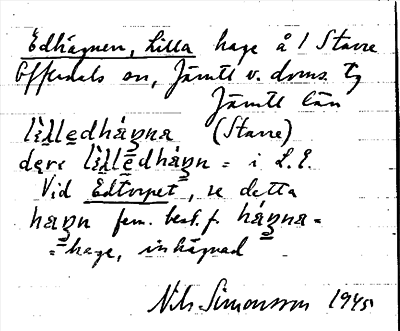 Edhägnen, Lilla hage å 1 Stavre
Offerdals sn, Jämtl. v. doms. tg
Jämtl. län
lìl̀ledhágna (Stavre)
dere lìl̀ledhágn = i L. E.
Vid Edtorpet, se detta
hagn fem. best. f. hágna =
= hage, inhägnad
Nils Simonsson 1945